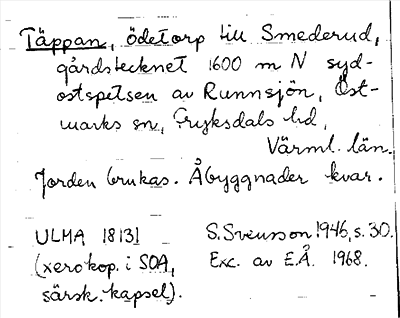 Täppan, ödetorp till Smederud,
gårdstecknet 1600 m N syd-
ostspetsen av Runnsjön, Öst-
marks sn, Fryksdals hd,
Värml. län.
Jorden brukas. Åbyggnader kvar.
ULMA 18131
(xerokop. i SOA,
särsk. kapsel).
S. Svensson 1946, s. 30.
Exc. av E.Å. 1968.